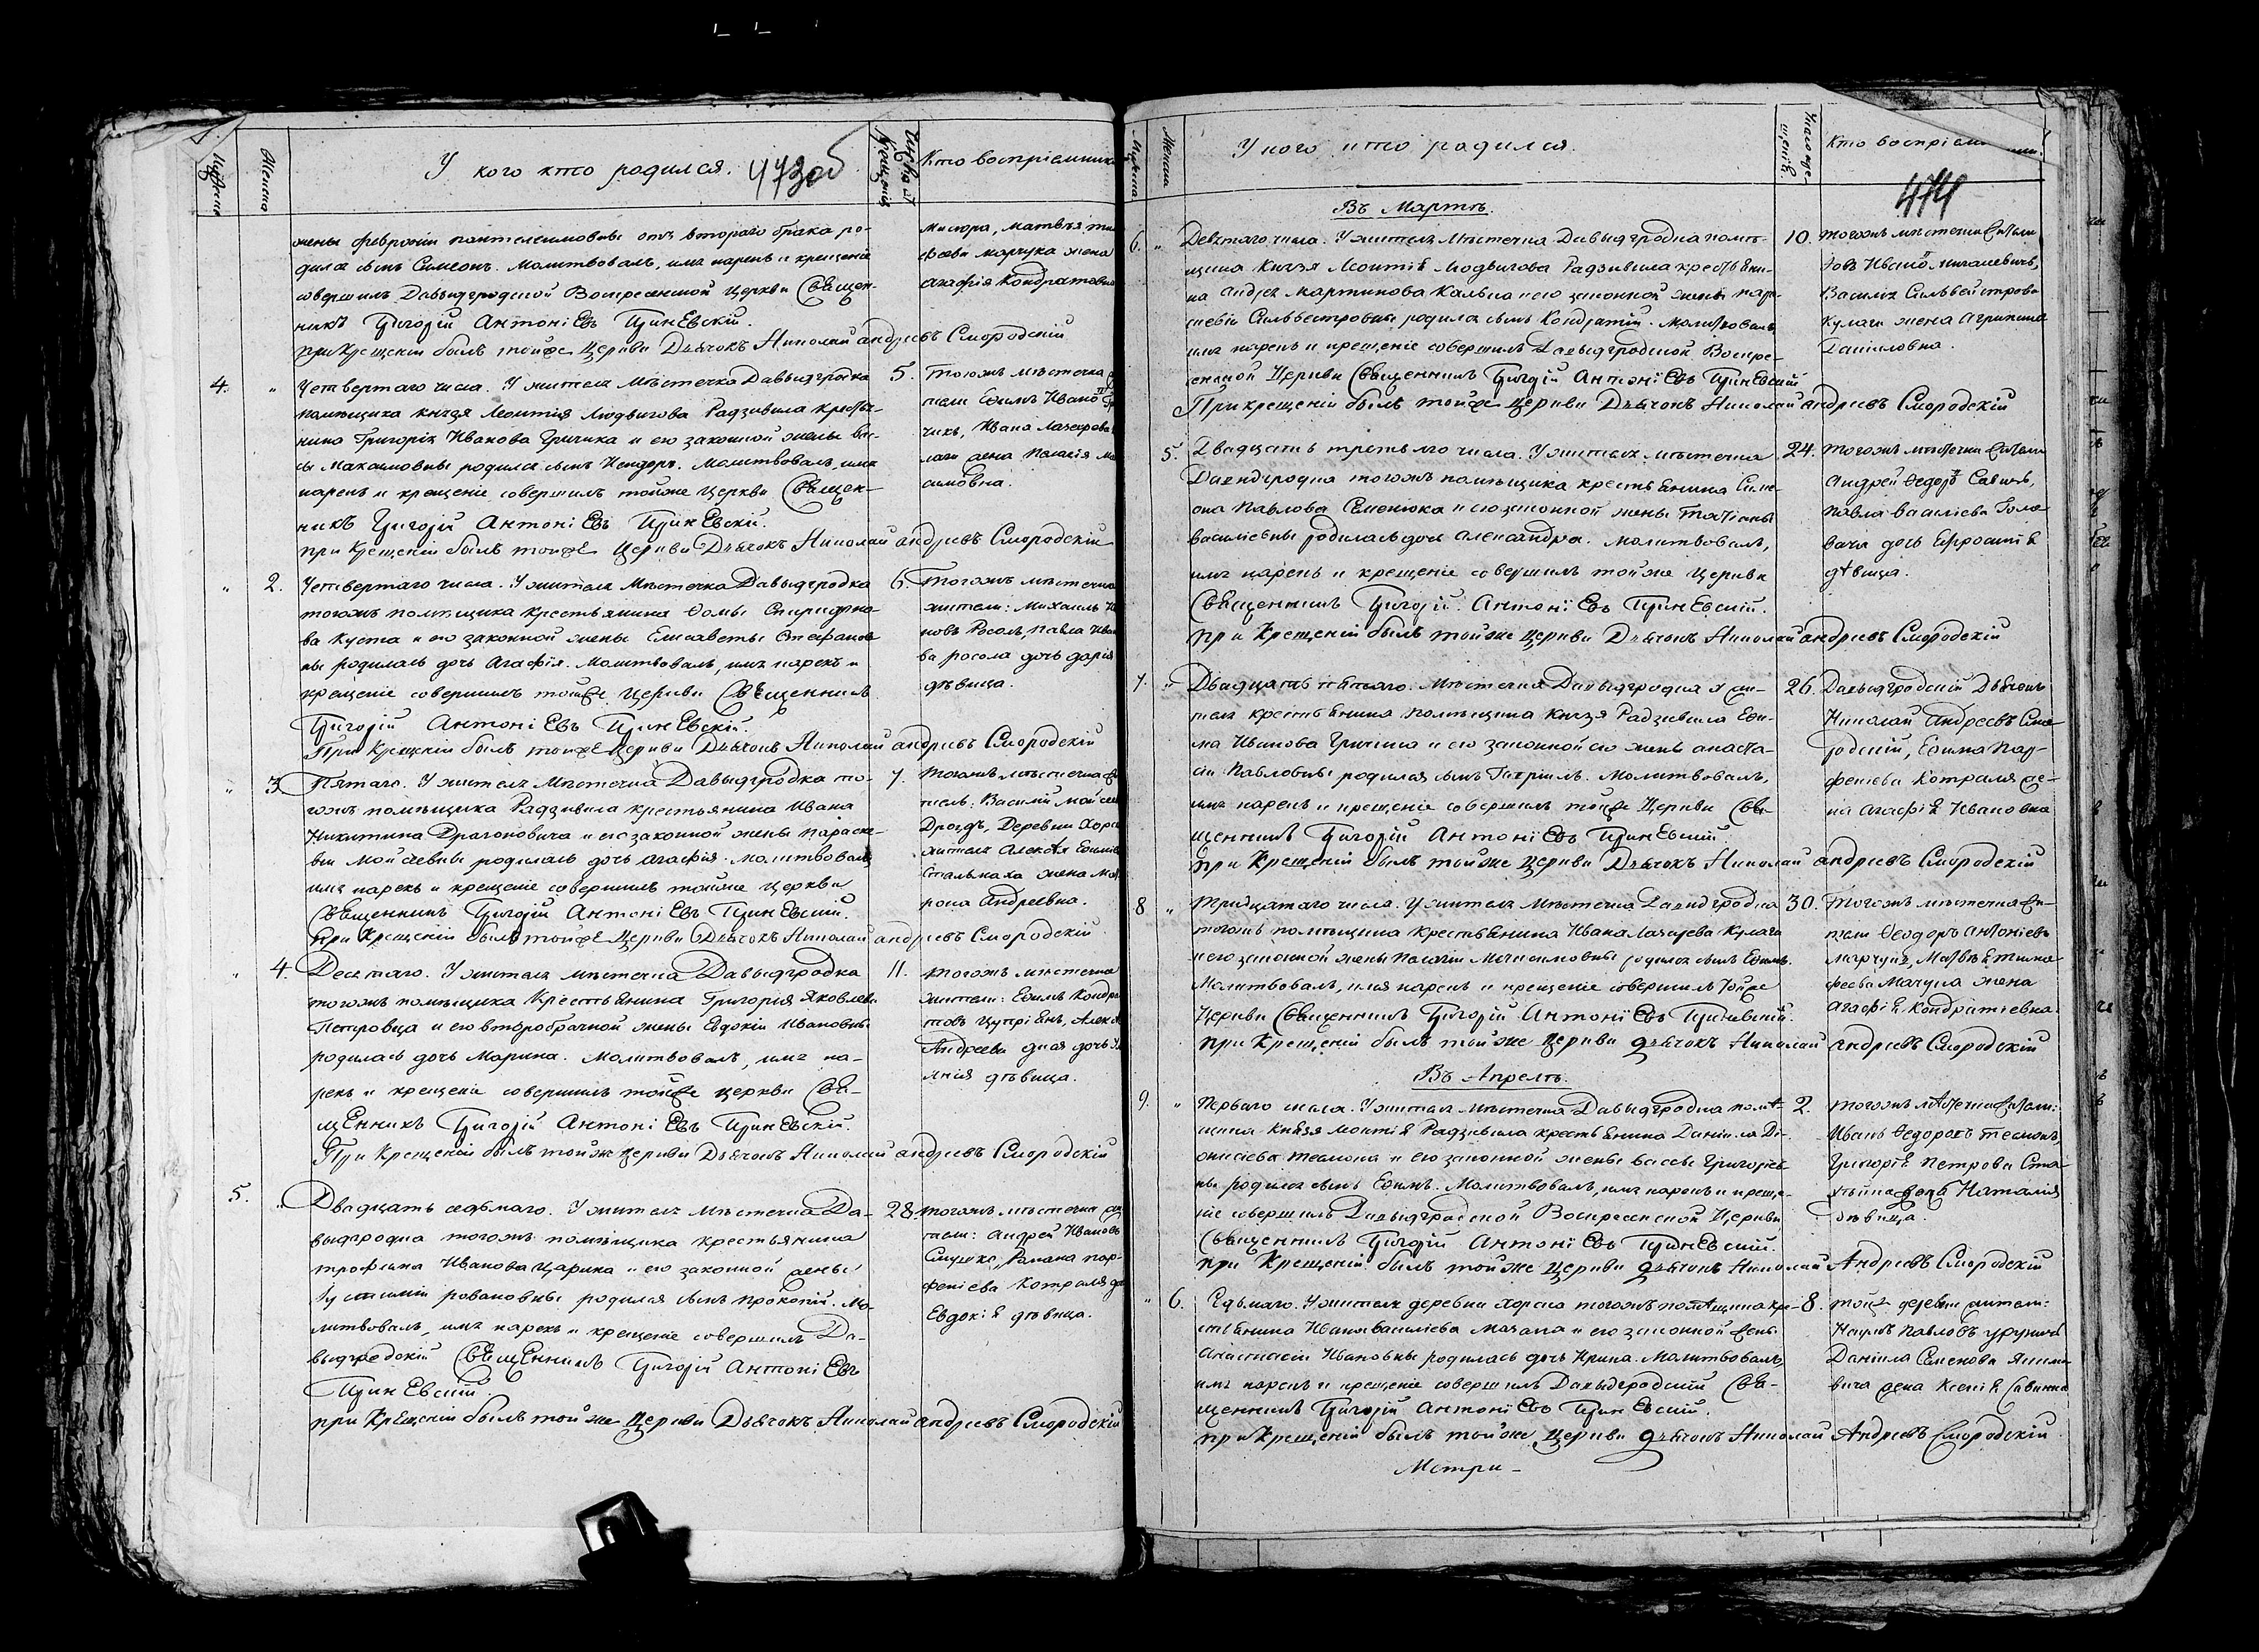 У кого кто родился.
473об
Кто воспріемники
жены Февроніи Пантелеимоновны отъ втораго брака ро-
дился сынъ Симеонъ. Молитвовалъ, имя нарекъ и крещеніе
совершилъ Давыдгродской Воскресенской Церкви Священ-
никъ Григорій Антоніевъ
При Крещеніи былъ тойже Церкви Дьячокъ Николай Андреевъ Смородскій
Матвѣя
жена
Агафія Кондратовна
4.
Четвертаго числа. У жителя Мѣстечка Давыдгродка
помѣщика князя Леонтія Людвигова Радзивила кресть-
нина Григорія Иванова Гричика и его законной жены Ва-
сы Максимовны родился сынъ Исидоръ. Молитвовалъ, имя
нарекъ и крещеніе совершилъ тойже Церкви Священ-
никъ Григорій Антоніевъ
При Крещеніи былъ тойже Церкви Дьячокъ Николай Андреевъ Смородскій
5.
Тогожъ мѣстечка
Ефимъ Ивановъ
чикъ, Ивана Лазарева
жена Пелагія
симовна.
2.
Четвертаго числа. У жителя Мѣстечка Давыдгродка
тогожъ помѣщика Крестьянина Фомы Спиридоно-
ва Куста и его законной жены Елисаветы Стефанов
ны родилась дочь Агафія. Молитвовалъ, имя нарекъ и
крещеніе совершилъ тойже Церкви Священникъ
Григорій Антоніевъ
При Крещеніи былъ тойже Церкви Дьячокъ Николай Андреевъ Смородскій
6.
Тогожъ мѣстечка
жители: Михаилъ
новъ Росолъ, Павла Ива
ва Росола дочь Дарія
дѣвица.
3
Пятаго. У жителя Мѣстечка Давыдгродка то-
гожъ помѣщика Радзивила крестьянина Ивана
Никитина Драгоновича и его законной жены Параске-
віи Мойсеевны родилась дочь Агафія. Молитвовалъ
имя нарекъ и крещеніе совершилъ тойже Церкви
Священникъ Григорій Антоніевъ
При Крещеніи былъ тойже Церкви Дьячокъ Николай Андреевъ Смородскій
7.
Тогожъ мѣстечка
тель: Василій Мойсеев
Дроздъ, Деревни Хорс
жителя Алексѣя Ефимова
Стальмаха жена Мат
рона Андреевна.
4.
Десятаго. У жителя мѣстечка Давыдгродка
тогожъ помѣщика Крестьянина Григорія Яковлева
Петровца и его второбрачной жены Евдокіи Ивановны
родилась дочь Марина. Молитвовалъ, имя на-
рекъ и крещеніе совершилъ тойже Церкви Свя-
щенникъ Григорій Антоніевъ
При Крещеніи былъ тойже Церкви Дьячокъ Николай Андреевъ Смородскій
11.
Тогожъ мѣстечка
жители: Ефимъ Кондра
товъ Цупріянъ,
Андреева дочь
дѣвица.
5.
Двадцать седьмаго. У жителя Мѣстечка Да-
выдгродка тогожъ помѣщика крестьянина
Трофима Иванова Царика и его законной жены
родился сынъ Прокопій. Мо-
литвовалъ, имя нарекъ и крещеніе совершилъ Да-
выдгродскій Священникъ Григорій Антоніевъ
При Крещеніи былъ тойже Церкви Дьячокъ Николай Андреевъ Смородскій
28.
Тогожъ мѣстечка
тели: Андрей Ивановъ
Романа Пар-
феніева Котраля
Евдокія дѣвица.
У кого кто родился.
Кто воспріемники
474
Въ Мартѣ.
6.
Девятаго числа. У жителя Мѣстечка Давыдгродка помѣ-
щика Князя Леонтія Людвигова Радзивила крестьяни-
на Андрея Мартинова и его законной жены Пара-
скевіи Сильвестровны родился сынъ Кондратій. Молитвовалъ
имя нарекъ и крещеніе совершилъ Давыдгродской Воскре-
сенской Церкви Священникъ Григорій Антоніевъ
При крещеніи былъ тойже Церкви Дьячокъ Николай Андреевъ Смородскій
10.
Тогожъ мѣстечка жители
Василія Сильвестрова
Кулаги жена Агрипина
Даниловна.
5.
Двадцать третьяго числа. У жителя мѣстечка
Давидгродка тогожъ помѣщика крестьянина Симе-
она Павлова Семенюка и его законной жены Татіаны
Василіевны родилась дочь Александра. Молитвовалъ,
имя нарекъ и крещеніе совершилъ тойже Церкви
Священникъ Григорій Антоніевъ
При Крещеніи былъ тойже Церкви Дьячокъ Николай Андреевъ Смородскій
24.
Тогожъ мѣстечка жители
Андрей Федоровъ
Павла Василіева Голо
вача дочь Ефросинія
дѣвица.
7.
Двадцать пятаго. Мѣстечка Давыдгродка у жи-
теля крестьянина помѣщика Князя Радзивила Ефи-
ма Иванова Гричика и его законной его жены Анаста-
сіи Павловны родился сынъ Гавріилъ. Молитвовалъ,
имя нарекъ и крещеніе совершилъ тойже Церкви Свя-
щенникъ Григорій Антоніевъ
При Крещеніи былъ тойже Церкви Дьячокъ Николай Андреевъ Смородскій
26.
Давыдгродскій Дьячокъ
Николай Андреевъ Смо
родскій, Ефима Пар-
феніева Котраля же-
на Агафія Ивановна
8
Тридцатаго числа. У жителя Мѣстечка Давидгродка
тогожъ помѣщика Крестьянина Ивана Лазарева Кулаги
и его законной жены Пелагіи Максимовны родился сынъ Ефимъ.
Молитвовалъ, имя нарекъ и крещеніе совершилъ тойже
Церкви Священникъ Григорій Антоніевъ
При Крещеніи былъ тойже Церкви Дьячокъ Николай Андреевъ Смородскій
30.
Тогожъ мѣстечка жи-
тели Феодоръ Антоніевъ
Марчукъ, Матвѣя Тимо
феева жена
Агафія Кондратіевна.
Въ Апрелѣ.
9.
Перваго числа. У жителя Мѣстечка Давыдгродка помѣ-
щика Князя Леонтія Радзивила крестьянина Даніила Ді-
онисіева и его законной жены Вассы Григоріев
ны родился сынъ Ефимъ. Молитвовалъ, имя нарекъ и креще-
ніе совершилъ Давыдгродской Воскресенской Церкви
Священникъ Григорій Антоніевъ
При Крещеніи былъ тойже Церкви Дьячокъ Николай Андреевъ Смородскій
2.
Тогожъ мѣстечка жители:
Иванъ Федоровъ
Григорія Петрова
дочь Наталія
дѣвица.
6.
Седьмаго. У жителя деревни Хорска тогожъ помѣщика кре-
стьянина Ивана Василіева и его законной жены
Анастасіи Ивановны родилась дочь Ирина. Молитвовалъ,
имя нарекъ и крещеніе совершилъ Давыдгродскій Свя-
щенникъ Григорій Антоніевъ
При Крещеніи былъ тойже Церкви Дьячокъ Николай Андреевъ Смородскій
8.
Тойже деревни жители:
Наумъ Павловъ
Даніила Семенова
вича жена Ксенія Савична
Метри-